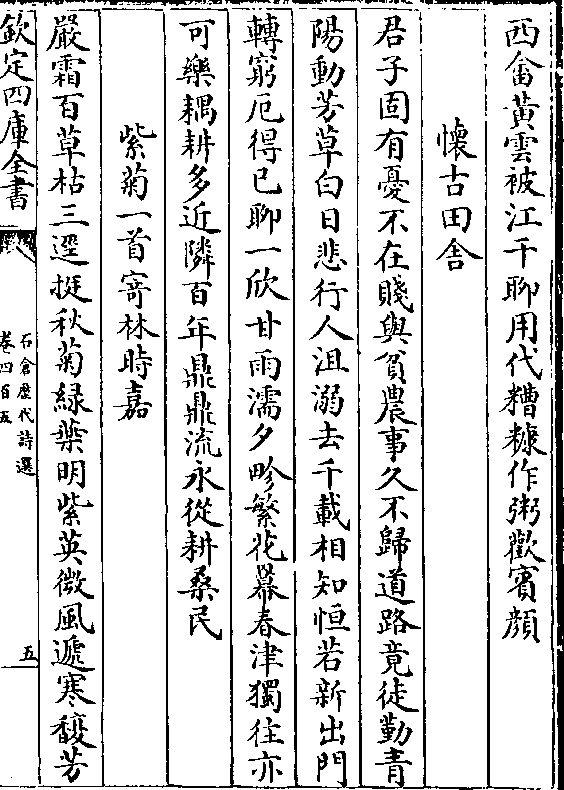 西畬黄雲被江干聊用代糟糠作粥歡賓顔
懷古田舍
君子固有憂不在賤與貧農事久不歸道路竟徒勤青
陽動芳草白日悲行人沮溺去千載相知恒若新出門
轉窮厄得已聊一欣甘雨濡夕畛繁花幕春津獨往亦
可樂耦耕多近隣百年鼎鼎流永從耕桑民
紫菊一首寄林時嘉
嚴霜百草枯三逕挺秋菊緑葉明紫英微風遞寒馥芳
欽定四庫全書
石倉歴代詩選
卷四百五
五